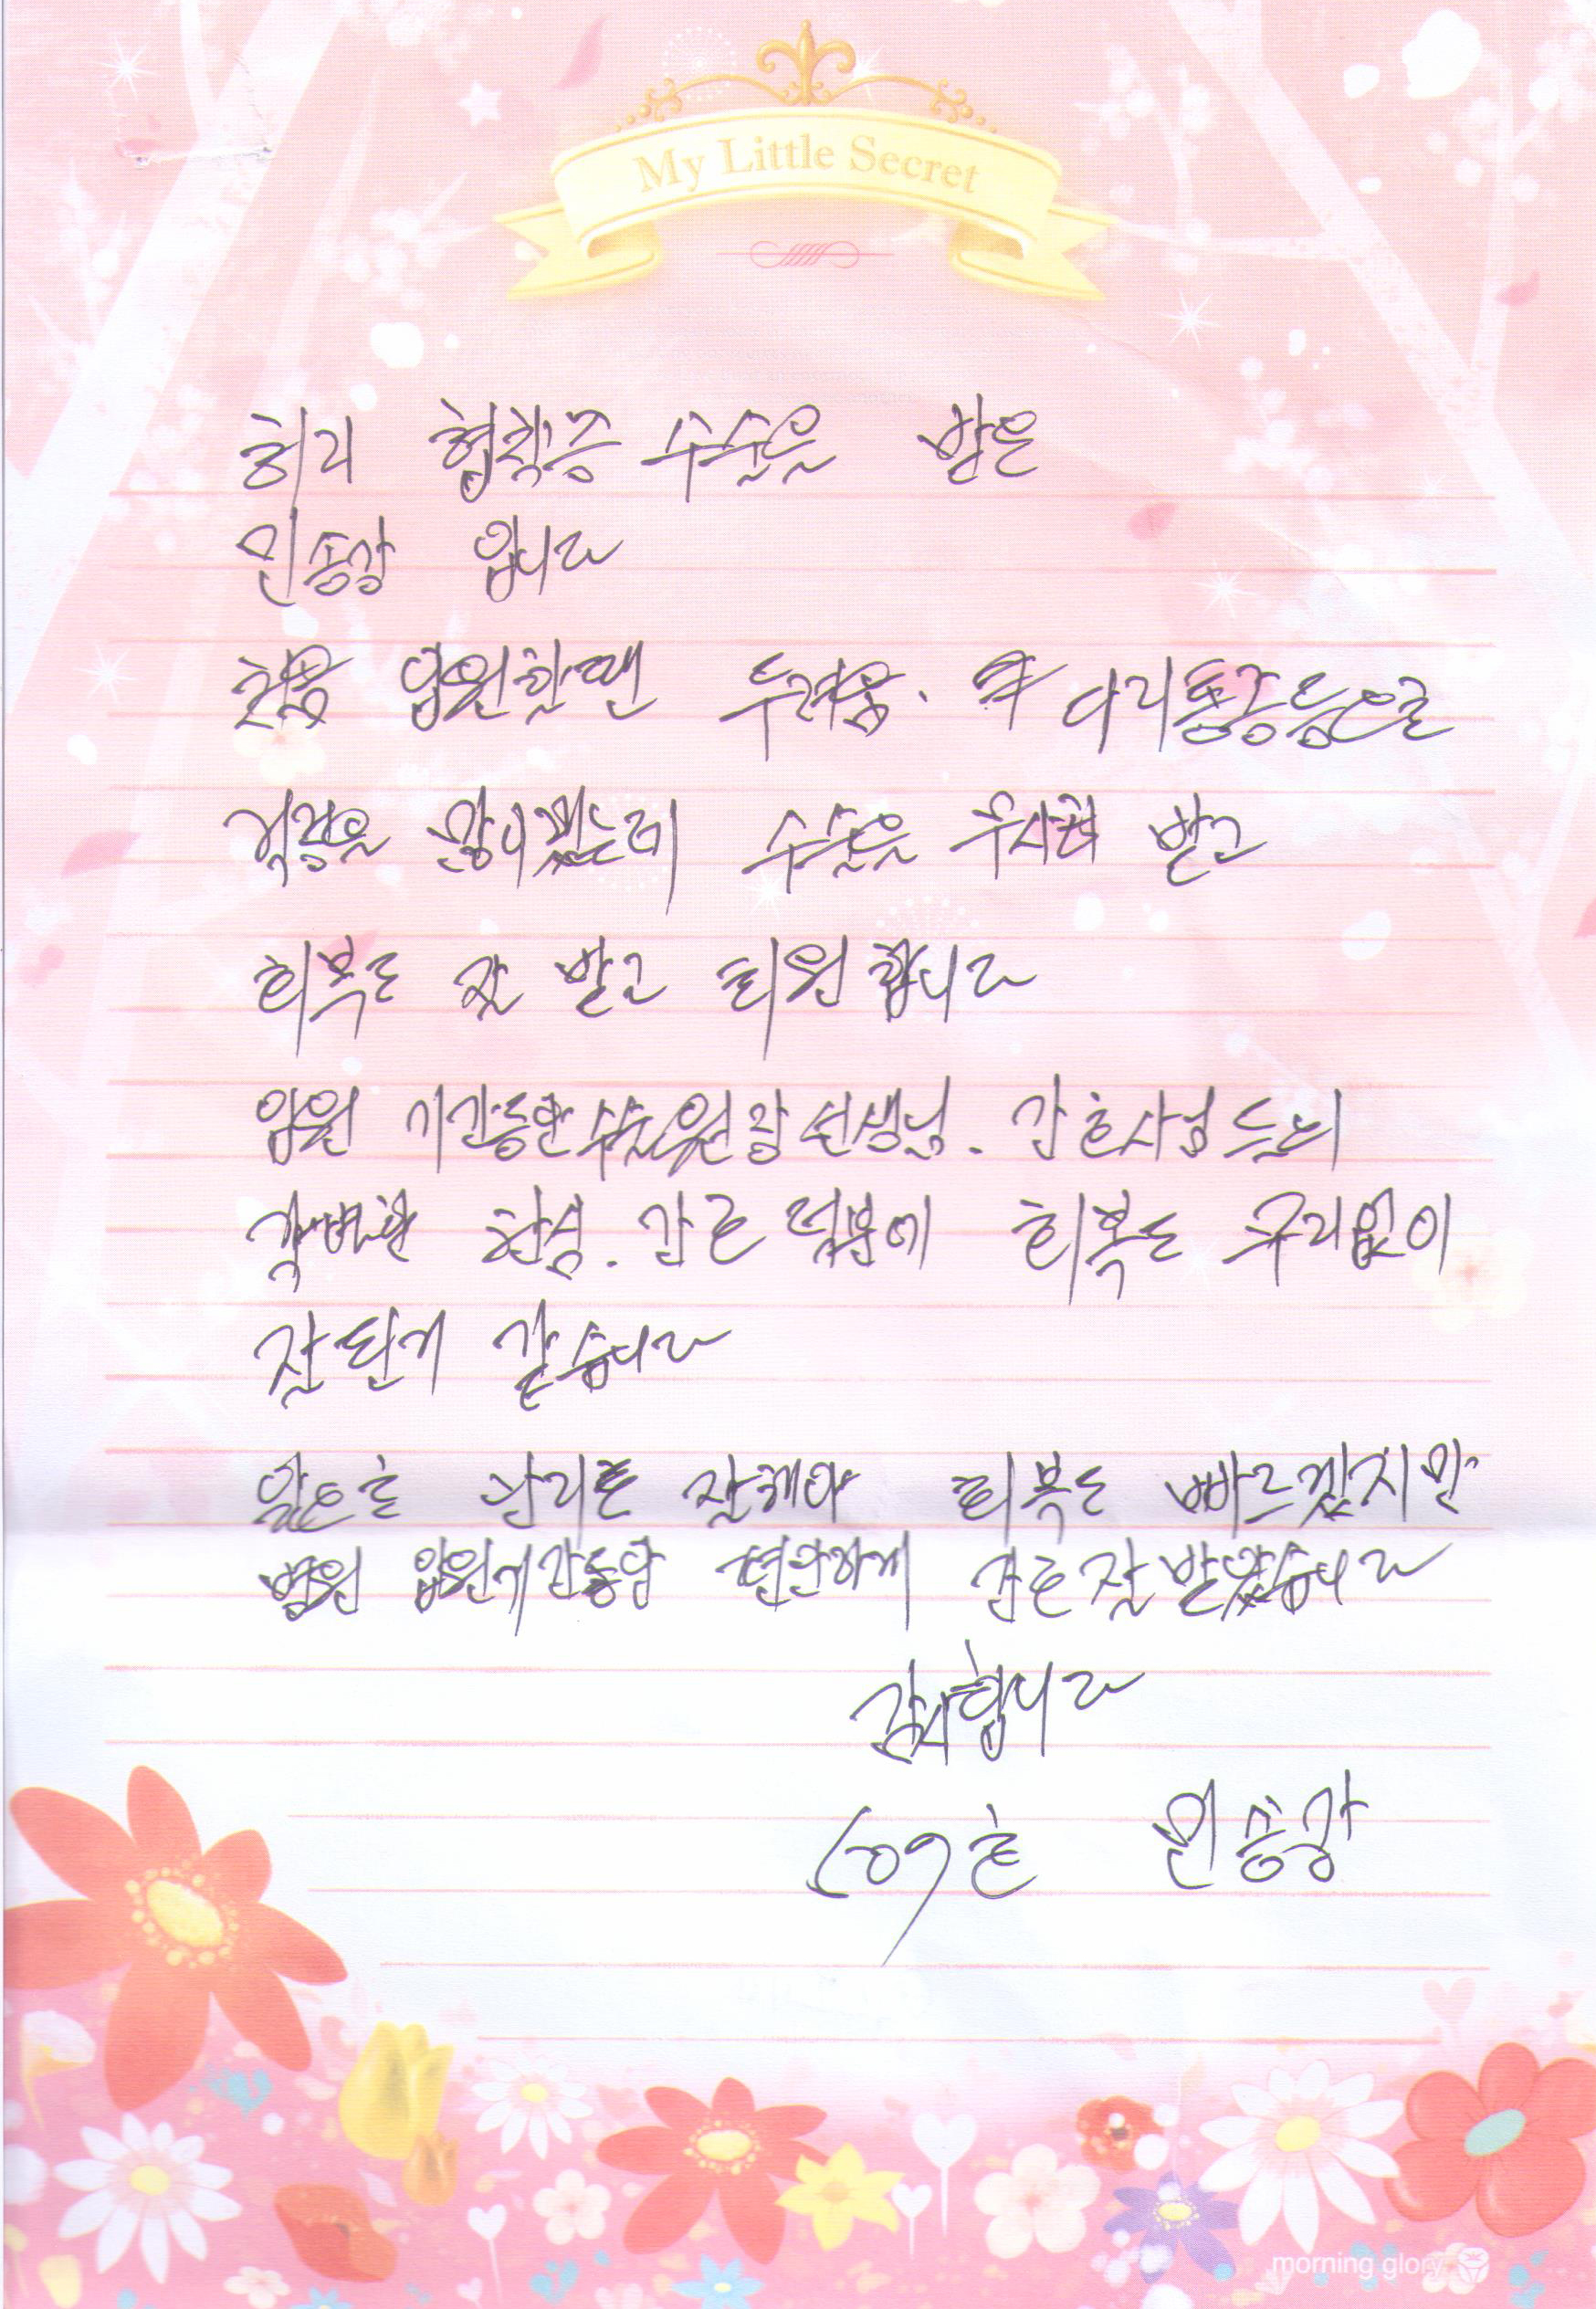 My Little Secret
허리 협착증 수술을 받은
민승강 입니다
처음 입원할땐 두려움. 다리통증등으로
걱정을 많이했는데 수술을 무사히 받고
회복도 잘 받고 퇴원 합니다
입원 기간동안 수술원장선생님. 간호사님들의
각별한 헌신. 간호 덕분에 회복도 무리없이
잘 된게 같습니다
앞으로 관리를 잘해야 회복도 빠르겠지만
병원 입원기간동안 편안하게 간호 잘 받았습니다
감사합니다
609호 민승강
morning glory